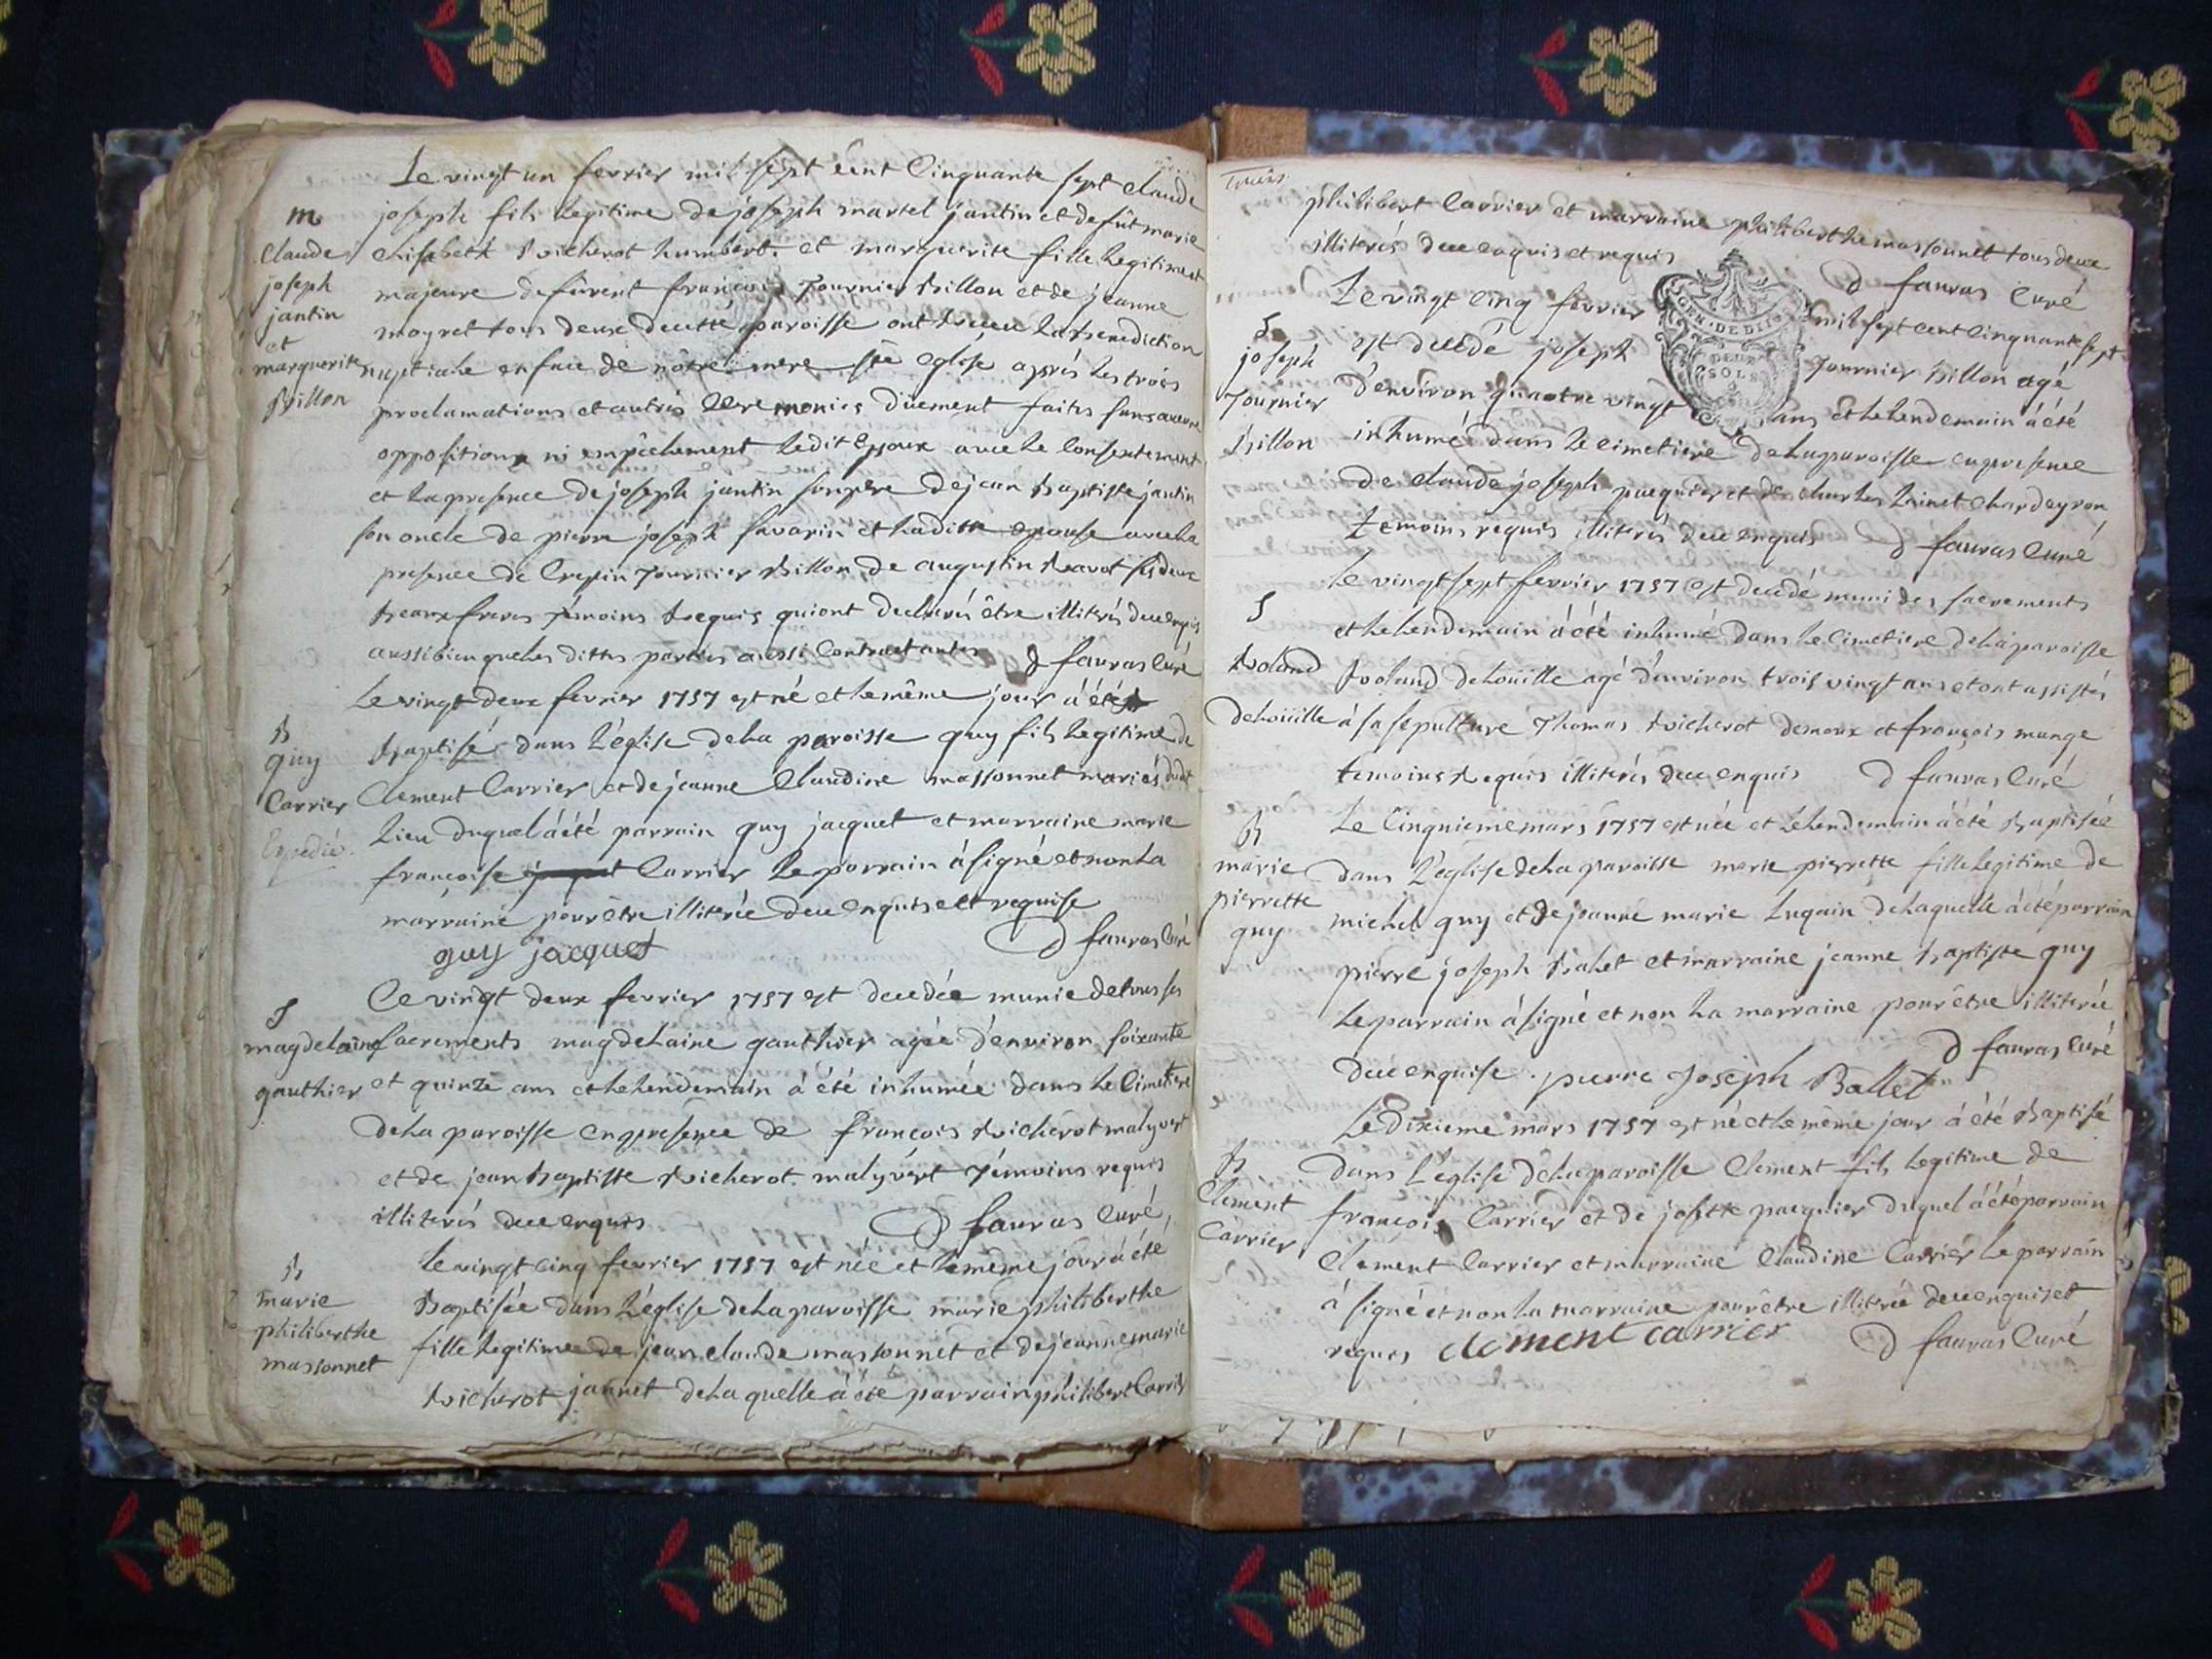 Le vingt un fevrier mil sept cent cinquante sept claude
m
joseph fils legitime de joseph martel jantin et de fût marie
claude
elisabeth Richerot humbert. et marguerite fille legitime et
joseph
majeure de fûrent françois Tournier Billon et de jeanne
jantin
moyret tous deux de cette paroisse ont reçeu la benediction
et
marguerite
nuptiale en face de nôtre mere ste eglise après les trois
Billon
proclamations et autres ceremonies dûement faites sans aucune
opposition ni empêchement ledit Epoux avec le consentement
et la presence de joseph jantin son pere de jean Baptiste jantin
son oncle de pierre joseph favarin et la ditte epouse avec la
presence de Crepin Tournier Billon de augustin Ravot ses deux
Beaux freres témoins Requis qui ont declarés être illiterés de ce enquis
aussi bien que les dittes parties aussi Contractantes D fauvas Curé
Le vingt deux fevrier 1757 est né et le même jour à été
B
Baptisé dans l'église de la paroisse guy fils legitime de
guy
Clement Carrier et de jeanne Claudine massonnet mariés dudit
Carrier
lieu duquel à été parrain guy jacquet et marraine marie
Expedié.
françoise Carrier le parrain à signé et non la
marraine pour être illiterée de ce enquise et requise
guy jacquet D fauvas Curé
Le vingt deux fevrier 1757 est decedée munie de tous ses
S
magdelaine
sacrements magdelaine gauthier agée d'environ soixante
gauthier
et quinze ans et le lendemain à été inhumée dans le Cimetiere
de la paroisse en presence de françois Richerot malyvert
et de jean Baptiste Richerot malyvert Témoins requis
illiterés de ce enquis D fauvas Curé,
Le vingt cinq fevrier 1757 est née et le même jour à été
B
marie
Baptisée dans l'église de la paroisse marie philiberthe
philiberthe
fille legitime de jean claude massonnet et de jeanne marie
massonnet
Richerot jannet de la quelle à été parrain philibert Carrier
philibert Carrier et marraine philiberthe massonnet tous deux
illiterés de ce enquis et requis D fauvas Curé
Le vingt cinq fevrier mil sept cent cinquante sept
GEN. DE DIJON
DEUX
SOLS
S
joseph
est decedé joseph Tournier Billon agé
Tournier
d'environ quatre vingt ans et le lendemain à été
Billon
inhumé dans le cimetiere de la paroisse en presence
de claude joseph pacquier et de charles lainet chardeyron
témoins requis illiterés de ce enquis D fauvas Curé
Le vingt sept fevrier 1757 est decedé muni des sacrements
S
et le lendemain à été inhumé dans le Cimetiere de la paroisse
Roland
Roland delouille agé d'environ trois vingt ans et ont assistés
delouille
à sa sepulture Thomas Richerot demoux et françois munge
temoins Requis illiterés de ce enquis D fauvas Curé
Le Cinquieme mars 1757 est née et le lendemain à été Baptisée
B
marie
dans l'église de la paroisse marie pierrette fille legitime de
pierrette
michel guy et de jeanne marie lugain de laquelle à été parrain
guy
pierre joseph Balet et marraine jeanne Baptiste guy
le parrain à signé et non la marraine pour être illiterée
de ce enquise. pierre Joseph Ballet D fauvas Curé
Le Dixieme mars 1757 est né et le même jour à été Baptisé
B
dans l'église de la paroisse Clement fils legitime de
Clement
françois Carrier et de josette pacquier duquel à été parrain
Carrier
Clement Carrier et marraine Claudine Carrier le parrain
à signé et non la marraine pour être illiterée de ce enquise et
requis clement carrier D fauvas Curé